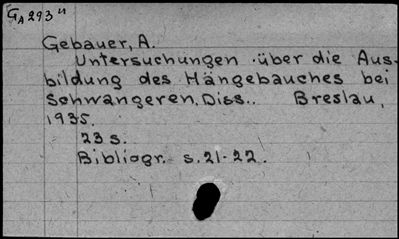 GA293"
Gebauer, A.
Untersuchungen über die Aus-
bildung des Hängebauches bei
Schwangeren, Diss.. Breslau,
1935.
23 s.
Bibliogr. s. 21-22.